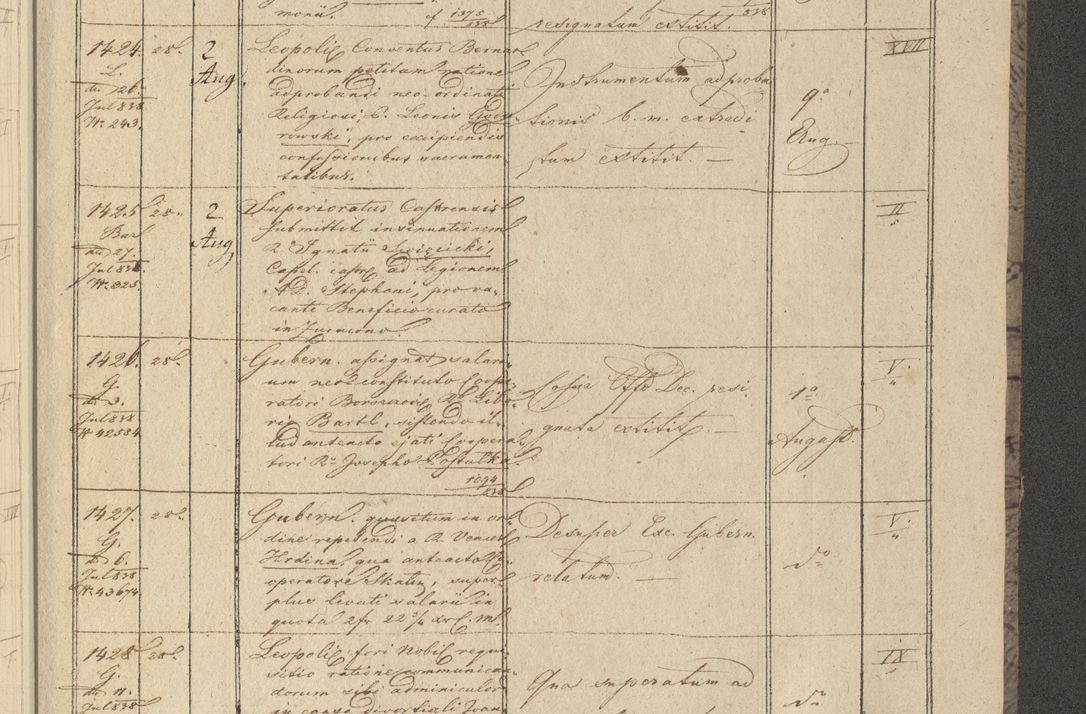 monii. cf 1375/838
resignatum extitit.
1424. 28.
L.
dto 26.
Jul 838
N. 243.
2
Aug.
Leopoli Conventus Bernar
dinorum petitum ratione
adprobandi neo-ordinati
Religiosi P. Leonis
rowski, pro excipiendis
confessionibus sacramen-
talibus.
Instrumentum adproba
tionis b. m. extradi
tum extitit. —
9a
Aug.
XVII
1425 28.
dto 27.
Jul 838.
N. 825.
2
Aug
Superioratus Castrensis
submittit insinuationem
R. Ignatii
Capel. castr. ad Legionem
A.D. Stephani, pro va-
cante Beneficio curato
in
II
1426. 28.
G.
dto 3.
Jul 838
N 42584
Gubern. assignat salari-
um neo-constituto Coope-
ratori
Bartl, sistendo il-
lud anteacto ejati Coopera-
tori Rdo Josepho Postulka
1094/838
gnata extitit. —
1a
August.
V.
1427. 28.
G.
dto 6.
Jul 838
N. 43674
Gubern. quaesitum in or-
dine repetendi a R. Vences
Hrdina, qua anteacto Co-
operatore Skalen, super-
plus levati salarii in
quota 2 fr 22 3/4 xr C. M.
Desuper Exc. Gubern.
relatum. —
do
V.
1428 28.
G.
dto 11.
Jul 838
Leopoli. fori Nobil. requi-
sitio ratione communican-
dorum sibi adminiculor
in causa divortiali Joan
Qua imperatum ad
do
IX